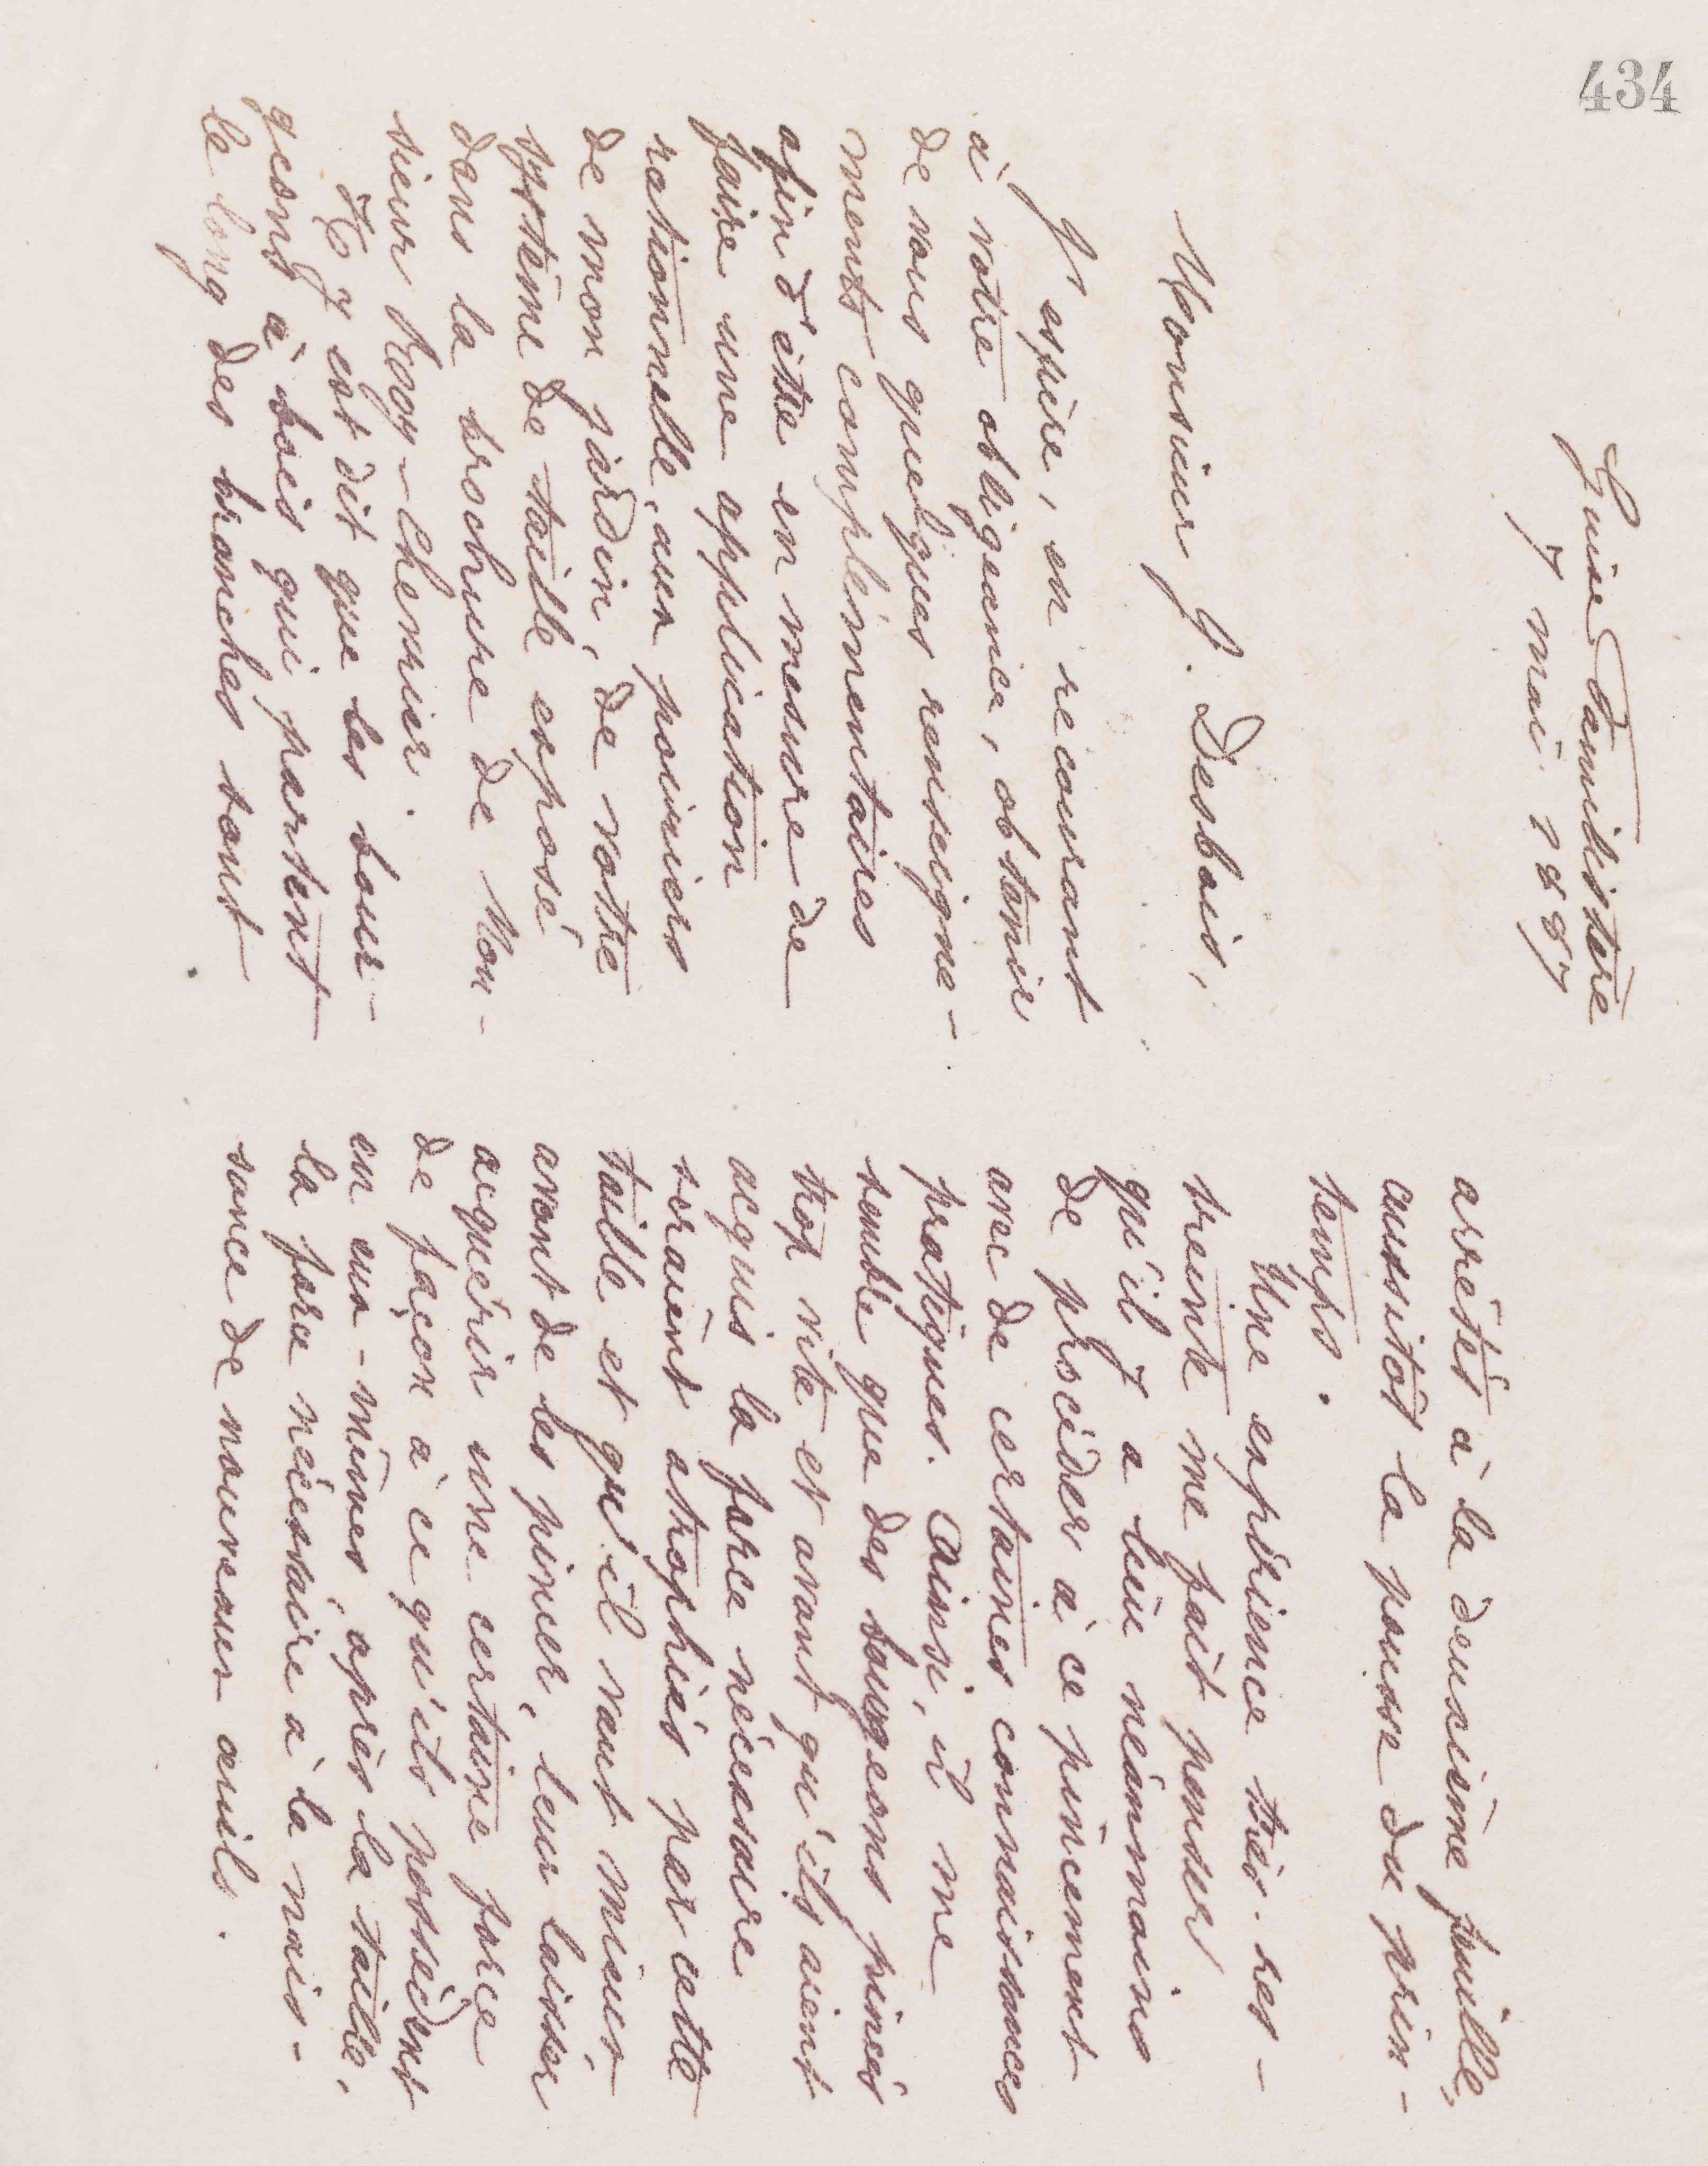 434
Guise Familistère
7 mai 1887
Monsieur J. Desbois,
J'espère, en recourant
à votre obligeance, obtenir
de vous quelques renseigne-
ments complémentaires
afin d'être en mesure de
faire une application
rationnelle, aux poiriers
de mon jardin, de votre
système de taille exposé
dans la brochure de Mon-
sieur Rogy-Chenrier.
Il y est dit que les bour-
geons à bois qui partent
le long des branches sont
arrêtés à la deuxième feuille,
aussitôt la pousse du prin-
temps.
Une expérience très-res-
treinte me fait penser
qu'il y a lieu néanmoins
de procéder à ce pincement
avec de certaines connaissances
pratiques. Ainsi, il me
semble que des bourgeons pincés
trop vite et avant qu'ils aient
acquis la force nécessaire
seraient atrophiés par cette
taille et qu'il vaut mieux,
avant de les pincer, leur laisser
acquérir une certaine force
de façon à ce qu'ils possèdent
en eux-mêmes, après la taille,
la force nécessaire à la nais-
sance de nouveaux œuils.